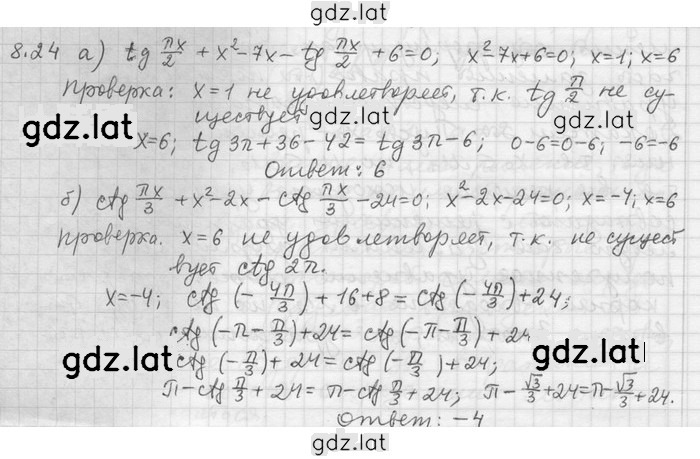 gdz.lat
8.24 а) tg πx/2 + x²-7x- tg πx/2 +6=0; x²-7x+6=0; x=1; x=6
Проверка: x=1 не удовлетворяет, т.к. tg π/2 не су-
ществует
gdz.lat gdz.lat
x=6; tg 3π+36-42= tg 3π-6; 0-6=0-6; -6=-6
Ответ: 6
б) ctg πx/3 + x²-2x - ctg πx/3 -24=0; x²-2x-24=0; x=-4; x=6
Проверка. x=6 не удовлетворяет, т.к. не сущест
вует ctg 2π.
gdz.lat
x=-4; ctg (- 4π/3) + 16+8 = ctg (- 4π/3)+24;
ctg (-π- π/3)+24= ctg (-π- π/3) + 24
gdz.lat gdz.lat
ctg (- π/3)+ 24 = ctg (- π/3 ) +24;
π-ctg π/3 + 24 = π-ctg π/3 +24; π- √3/3 +24=π- √3/3 +24.
Ответ: -4
gdz.lat